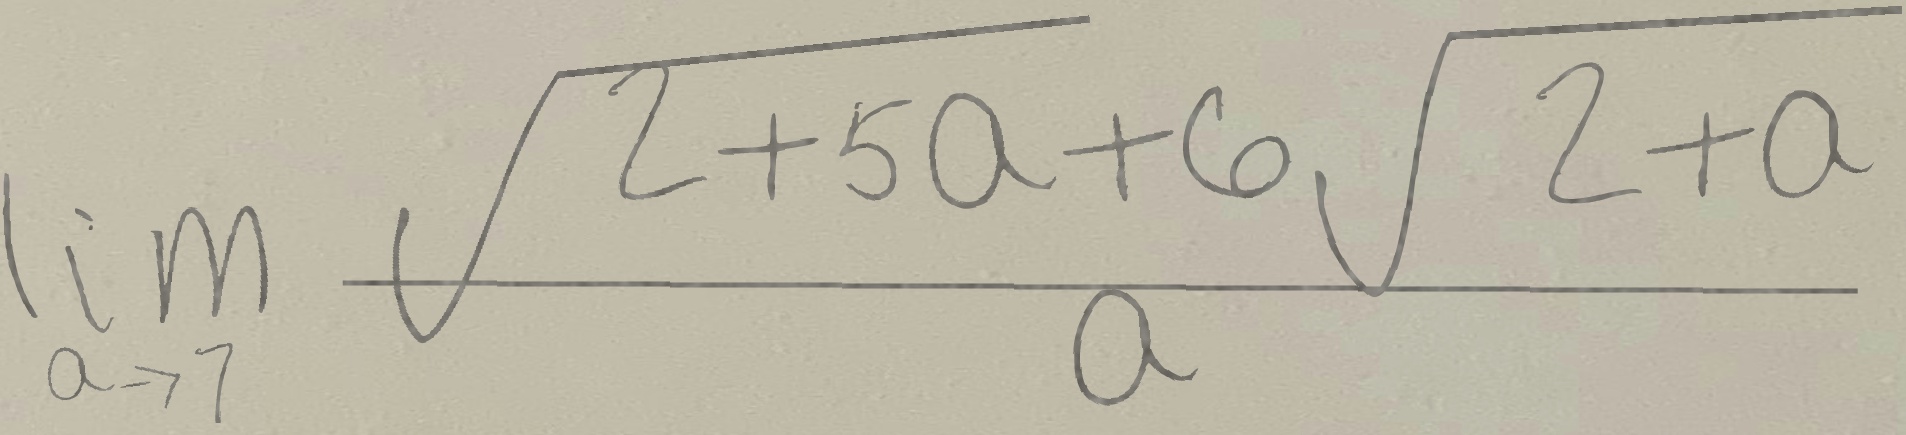 \lim_{a \to 7} \frac{\sqrt{2+5a}+6\sqrt{2+a}}{a}